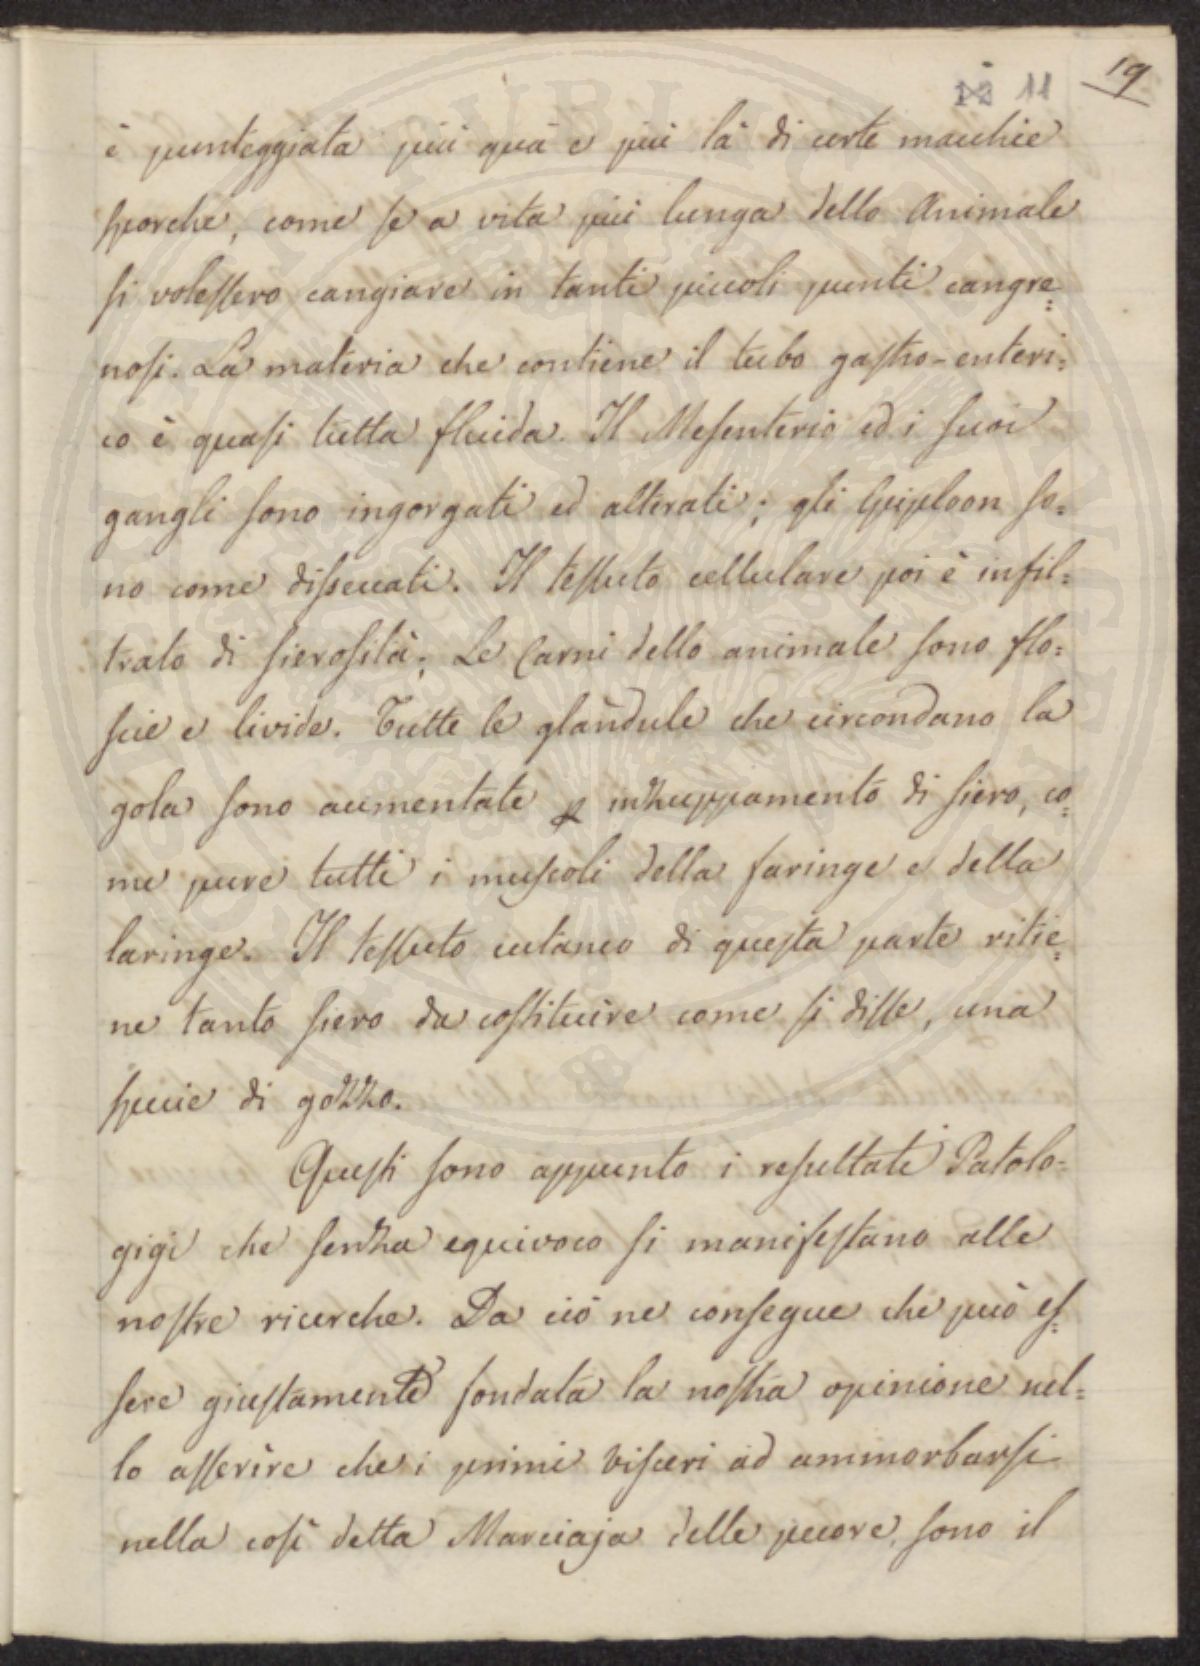 11 19
è punteggiata più quà e più là di certe macchie
sporche, come se a vita più lunga dello Animale
si volessero cangiare in tanti piccoli punti cangre=
nosi. La materia che contiene il tubo gastro-enteri=
co è quasi tutta fluida. Il Mesenterio ed i suoi
gangli sono ingorgati ed alterati; gli Epiploon so=
no come disseccati. Il tessuto cellulare poi è infil=
trato di sierosità; Le Carni dello animale sono flo=
scie e livide. Tutte le glandule che circondano la
gola sono aumentate p inzuppamento di siero, co=
me pure tutti i muscoli della faringe e della
laringe. Il tessuto cutaneo di questa parte ritie=
ne tanto siero da costituire come si disse, una
specie di gozzo.
Questi sono appunto i resultati Patolo=
gigi che senza equivoco si manifestano alle
nostre ricerche. Da ciò ne consegue che può es=
sere giustamente fondata la nostra opinione nel=
lo asserire che i primi visceri ad ammorbarsi
nella così detta Marciaja delle pecore, sono il